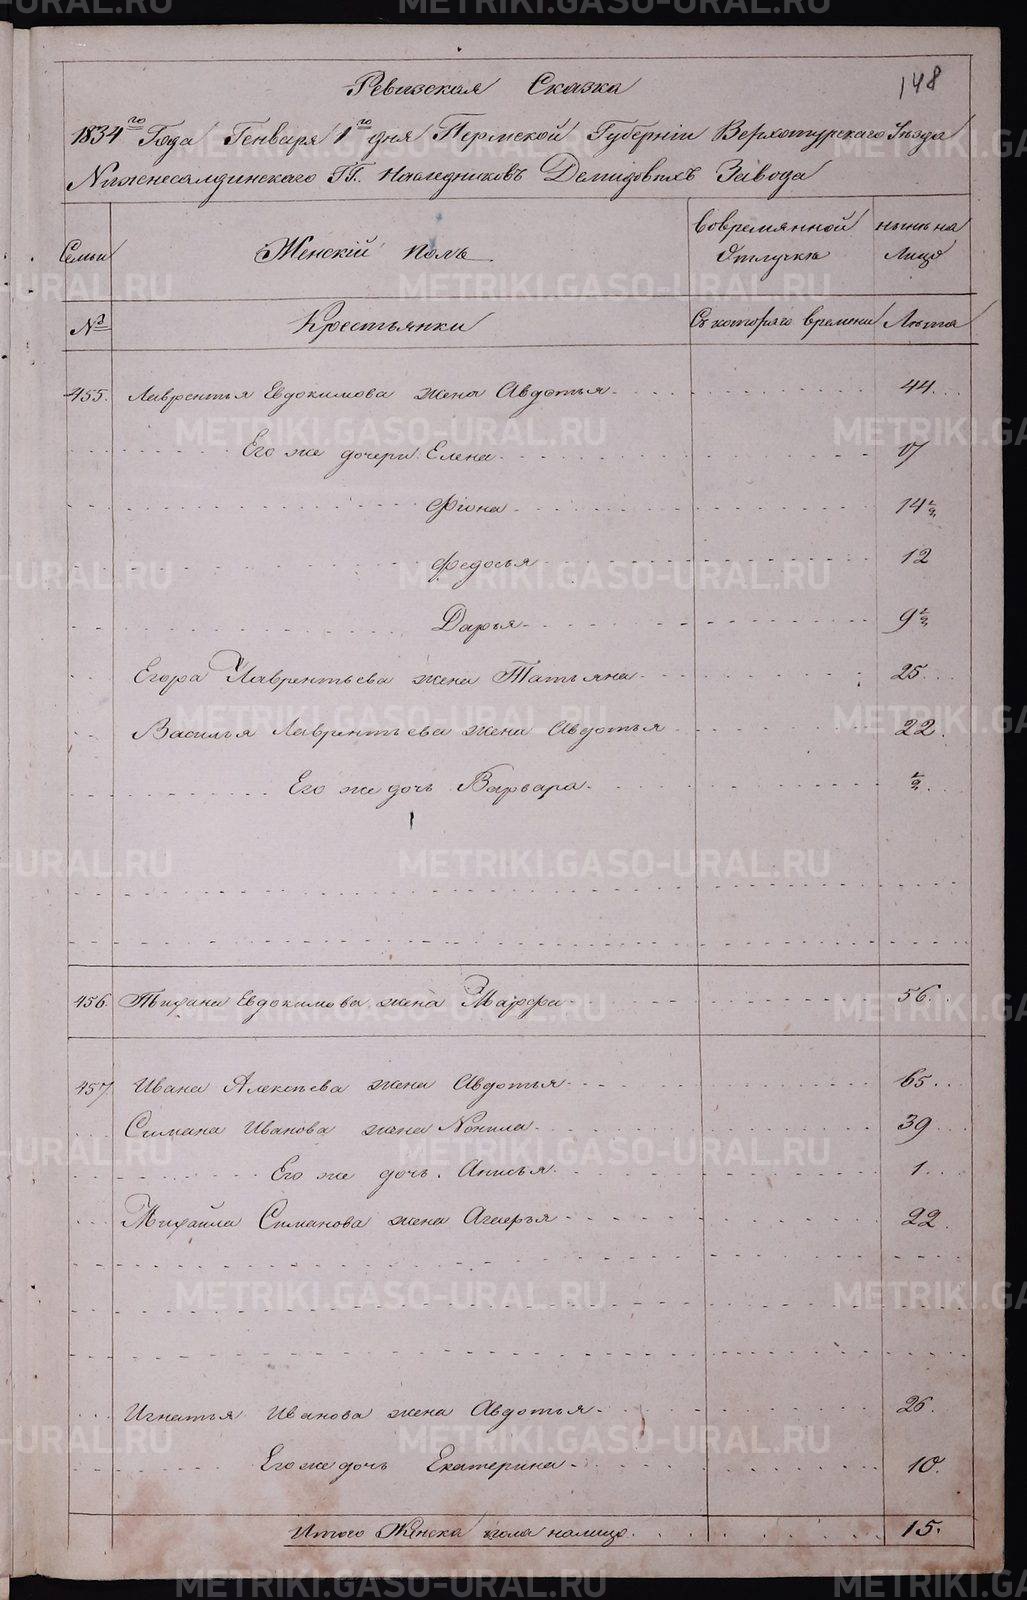 148
Ревизская Сказка
1834го Года Генваря 1го дня Пермской Губернiи Верхотурскаго Уезда
Нижнесалдинскаго ГГ. Наследниковъ Демидовыхъ Завода
Семьи
Женскiй полъ
Вовремянной Отлучке
ныне на Лицо
№
Крестьянки
Съ котораго времени
Лета
455. Лаврентья Евдокимова жена Авдотья 44.
Его же дочери. Елена 17
Фiона 14 1/2
Федосья 12
Дарья 9 1/2
Егора Лаврентьева жена Татьяна 25.
Василья Лаврентьева жена Авдотья 22.
Его же дочь Варвара 1/2.
456. Тихана Евдокимова жена Марфа 56.
457. Ивана Алексеева жена Авдотья 65.
Симана Иванова жена Нонила 39
Его же дочь. Анисья 1.
Михайла Симанова жена Агафья 22.
Игнатья Иванова жена Авдотья 26.
Его же дочь Екатерина 10.
Итого Женска пола налицо 15.
METRIKI.GASO-URAL.RU